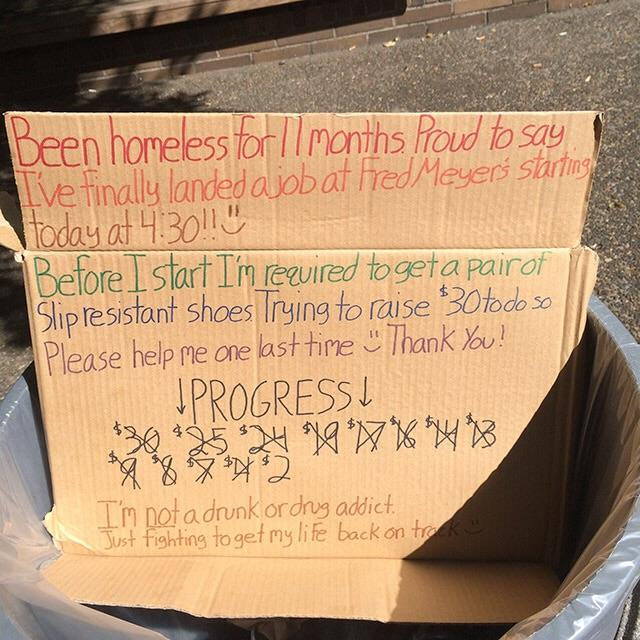 Been homeless for 11 months. Proud to say
I've finally landed a job at Fred Meyer's starting
today at 4:30!!
Before I start I'm required to get a pair of
Slip resistant shoes Trying to raise $30 to do so
Please help me one last time Thank You!
↓PROGRESS↓
$30 $25 $24 $19 $17 $16 $14 $13
$9 $8 $7 $4 $2
I'm not a drunk or drug addict.
Just fighting to get my life back on track